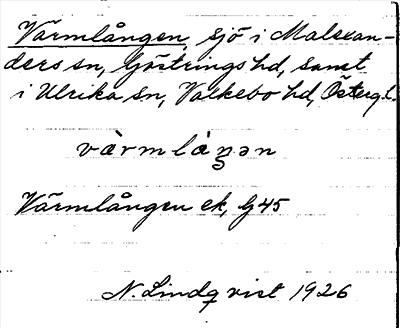 Värmlången, sjö i Malexan-
ders sn, Göstrings hd, samt
i Ulrika sn, Valkebo hd, Östergl.
vàrmlàŋən
Värmlången ek, G45
N. Lindqvist 1926